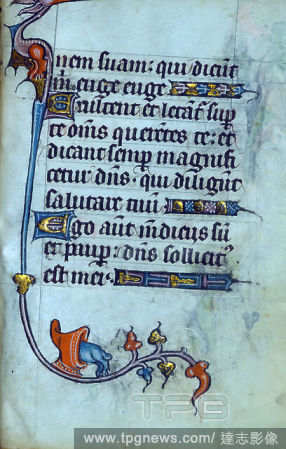 nem suam: qui dicūt
m̄ euge euge
Exultent et letent̄ sup̄
te om̄s querētes te: et
dicant semp̄ magnifi
cetur dn̄s: qui diligūt
salutare tuū
Ego aūt mēdicus sū
et paup̄: dn̄s sollicit᷒
est mei.
TPG
www.tpgnews.com/ 達志影像